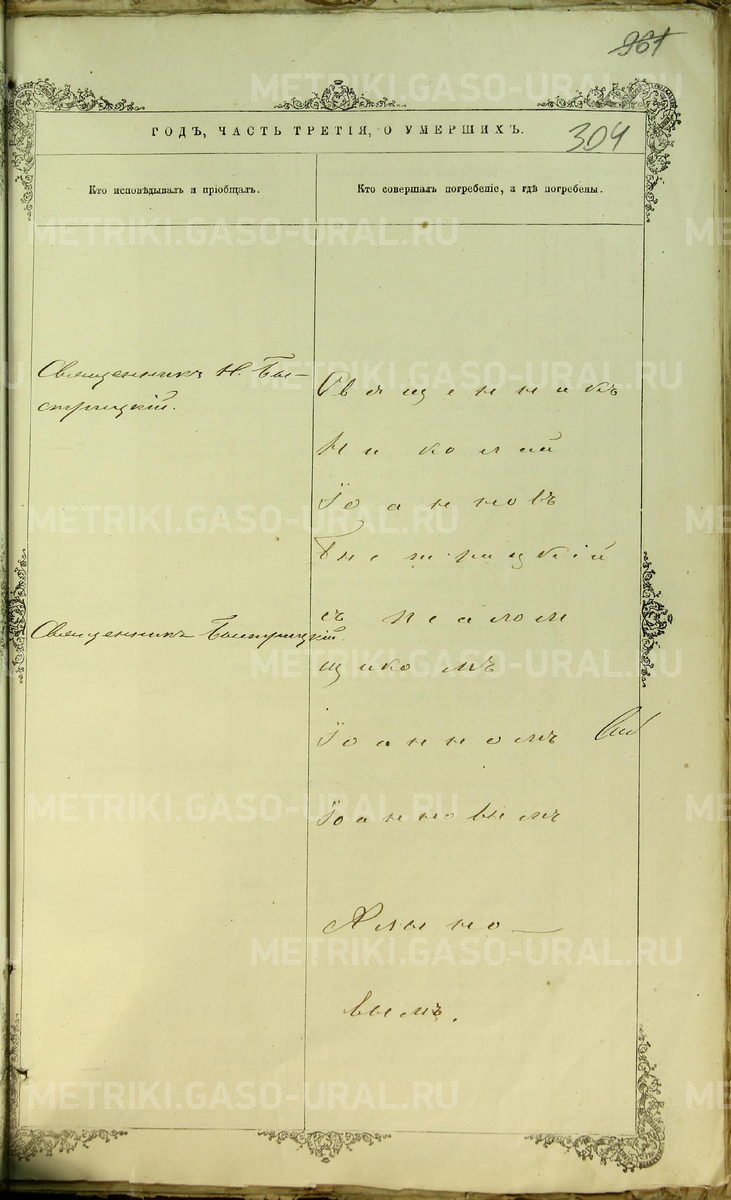 961
ГОДЪ, ЧАСТЬ ТРЕТІЯ, О УМЕРШИХЪ.
304
Кто исповѣдывалъ и пріобщалъ.
Кто совершалъ погребеніе, и гдѣ погребены.
Священникъ Н. Бы-
стрицкій.
Священникъ Быстрицкій.
Священникъ
Николай
Іоанновъ
Быстрицкій
съ псалом
щикомъ
Іоанномъ
Іоанновымъ
вымъ.
METRIKI.GASO-URAL.RU